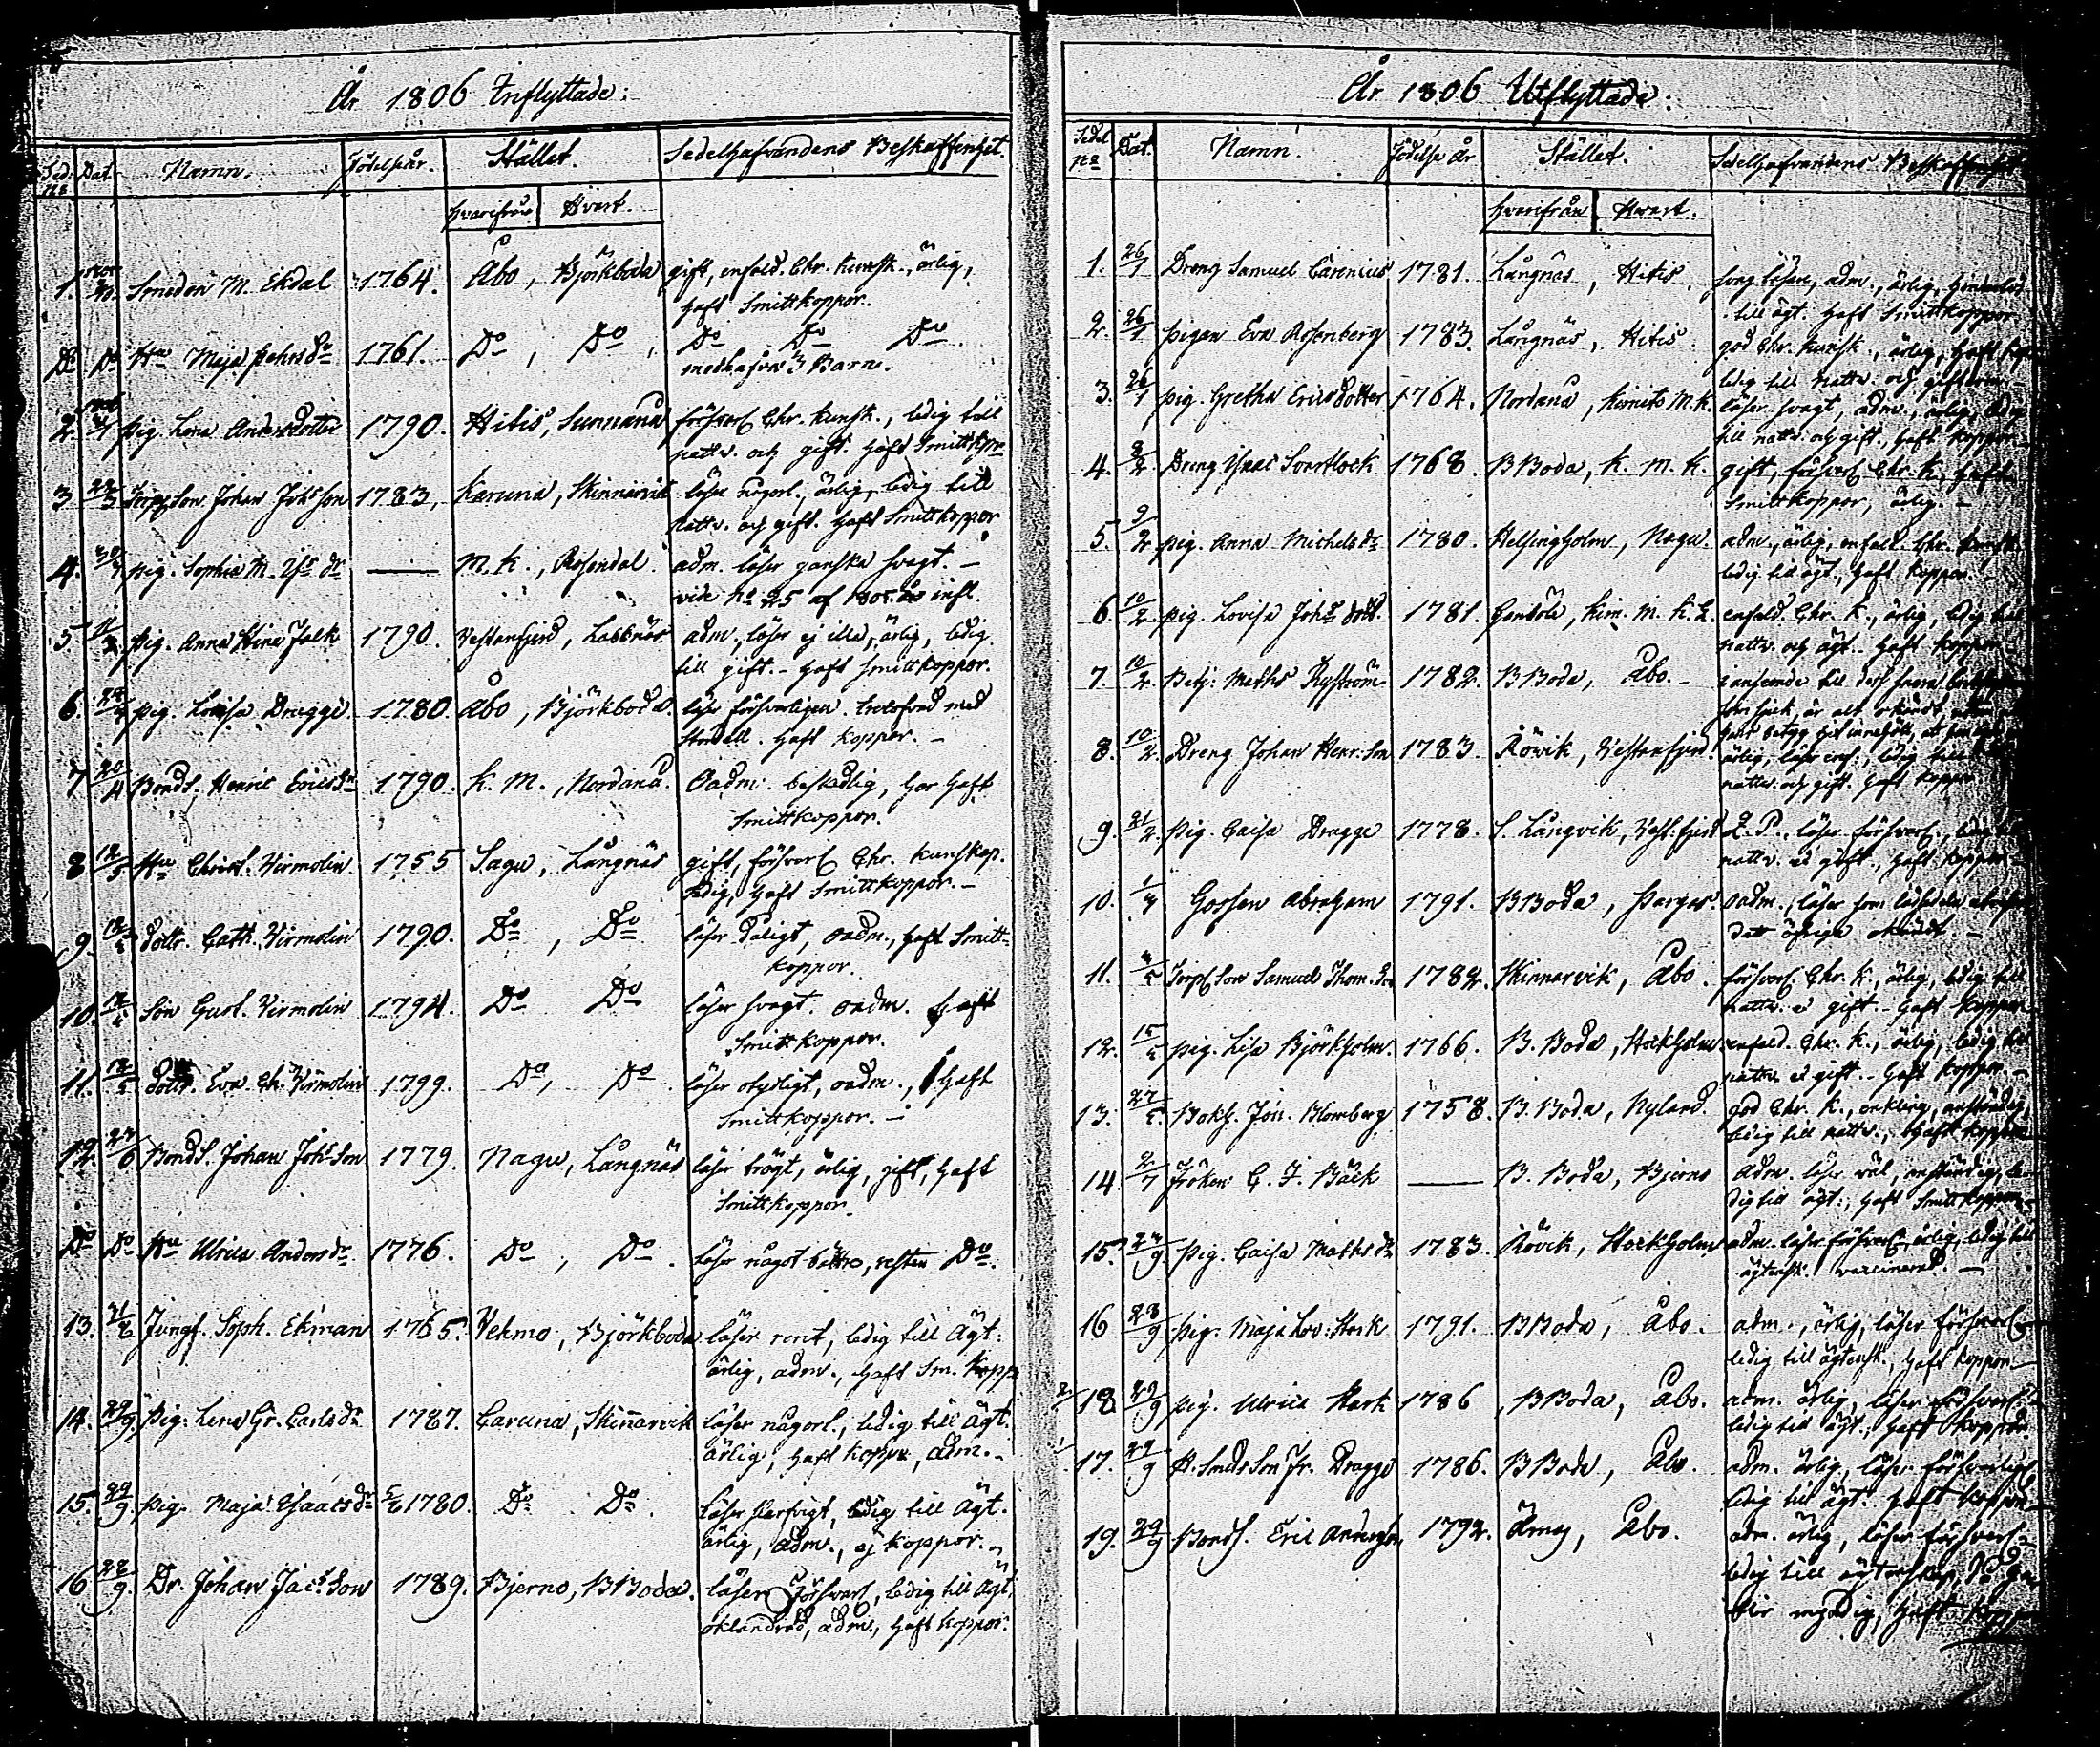 År 1806 Inflyttade:
Sed. No Dat. Namn. Födelseår. Stället. Sedelhafvandens Beskaffenhet.
hvarifrån Hvart.
1. Smeden M. Ekdal 1764. Åbo, Björkboda gift, enfald. Chr. kunsk., ärlig,
haft Smittkoppor.
Do Do Hu Maja 1761. Do, Do, Do Do Do
3 Barn.
2. pig. Lena Andersdotter 1790. Hitis, Sunnanå försvarl Chr. kunsk., ledig till
nattv. och gift. haft Smittkopr
3 22/3 Johan Johsson 1783, Karuna, Skinnarvik läser någorl., ärlig, ledig till
nattv. och gift. haft Smittkoppor
4. pig. Sophia M. dr — M. K., Rosendal. adm. läser ganska svagt. —
vide No 25 af 1805 infl.
5 pig. Anna Stina Falk 1790. Vestanfjerd, Labbnäs adm., läser ej illa, ärlig, ledig
till gift. - haft smittkoppor.
6. pig. Lovisa Dragge 1780. Åbo, Björkboda. läser försvarligen. trolofvad med
haft koppor. —
7 20/4 Bonds. Henric Ericsson 1790. K. M., Nordanå. Oadm. beskedlig, har haft
Smittkoppor.
8 12/5 Hu Christ. Virmolin 1755 Sagu, Långnäs gift, försvarl Chr. kunskap.
ledig, haft Smittkoppor. —
9. 12/5 dottr. Cath. Virmolin 1790. Do, Do läser dåligt, oadm., haft Smitt-
koppor.
10. 12/5 Son Gust. Virmolin 1794. Do Do läser svagt. oadm. haft
Smittkoppor.
11. 12/5 dottr. Eva Virmolin 1799. Do, Do läser otydligt, oadm., haft
Smittkoppor. —
12. 27/6 Bonds. Johan Johsson 1779. Nagu, Långnäs läser trögt, ärlig, gift, haft
Smittkoppor.
Do Do Hu Ulrica Andersdr 1776. Do, Do. läser något bättre, resten Do.
13. 21/8 Jungf. Soph. Ekman 1765. Vehmo, Björkboda läser rent, ledig till Ägt.
ärlig, adm., haft Sm. kopp
14. 29/9 Pig. Lena Gr. Carlsdr 1787. Caruna, Skinnarvik läser någorl., ledig till ägt.
ärlig, haft koppor, adm. -
15. 29/9. Pig. Maja Isaacsdr 1780. Do Do läser, ledig till Ägt.
ärlig, adm., ej koppor. -
16 28/9. Dr. Johan Jacs Son 1789. Bjerno, BBoda. läser försvarl, ledig till Ägt.
oklandrad, adm., haft koppor.
År 1806 Utflyttade:
Sedel No Dat. Namn. Födelse År Stället. Sedelhafvandens Beskaffenhet
hvarifrån Hvart.
1. 26/1 Dreng Samuel Carenius 1781. Långnäs, Hitis. svag läsare, adm., ärlig,
till ägt. haft Smittkoppor
2. 26/1 pigan Eva Rosenberg 1783. Långnäs, Hitis god Chr. kunsk., ärlig, haft
ledig till nattv. och
3. 26/1 pig. Gretha Ericsdotter 1764. Nordanå, Kimito M.K. läser svagt, adm., ärlig, ledig
till nattv. och gift., haft koppor
4. 8/2 Dreng Isaac 1768 BBoda, K. M. K. gift, försvarl Chr. K., haft
Smittkoppor, ärlig. —
5. 9/2 pig. Anna Michelsdr 1780. Helsingholm, Nagu. adm., ärlig, enfald. Chr. kunsk.
ledig till ägt., haft koppor. —
6. 10/2. pig. Lovisa Johs dott. 1781. Kim. M. K. enfald. Chr. K., ärlig, ledig till
nattv. och ägt. haft koppor
7. 10/2. Betj: Maths Nyström 1782. BBoda, Åbo.
8. 10/2. Dreng Johan Henr: Son 1783. Rövik, Vestanfjerd. ärlig, läser enf., ledig till
nattv. och gift. haft koppor
9. 21/2. Pig. Caisa Dragge 1778. S. Långvik, Vest:fjerd läser försvarl., ledig till
nattv. o. gift., haft koppor
10. Gossen Abraham 1791. BBoda, Pargas. Oadm., läser som
det öfriga okändt. —
11. Son Samuel Thom. Son 1782. Skinnarvik, Åbo. försvarl. Chr. K., ärlig, ledig till
nattv. o. gift. - haft koppor
12. 15/5 pig. Lisa Björkholm. 1766. B. Boda, Stockholm enfald. Chr. K., ärlig, ledig till
nattv. o. gift. - haft koppor. —
13. 27/5. Bokh. Jon. Blomberg 1758. B. Boda, Nyland. god Chr. K.,
ledig till nattv., haft koppor
14. 2/7 Fröken C. F. Bäck — B. Boda, Bjerno Adm. läser väl, anständig, le-
dig till ägt., haft Smittkoppor
15. 24/9. Pig. Caisa Mathsdr 1783. Rövik, Stockholm adm. läser försvarl, ärlig, ledig till
ägtensk. vaccinerad. —
16 28/9 Pig. Maja Lov: Stark 1791. BBoda, Åbo. adm., ärlig, läser försvarl
ledig till ägtensk., haft koppor —
2/ 18. 29/9 Pig. Ulrica Stark 1786 BBoda, Åbo. adm. ärlig, läser försvarl
ledig till ägt., haft koppor.
1/ 17. 29/9 Son Fr. Dragge 1786. BBoda, Åbo. adm. ärlig, läser försvarligt
ledig till ägt. haft koppor
19. 29/9 Bonds. Eric Andersson 1792. Åbo. adm. ärlig, läser försvarl.
ledig till ägtenskap,
blir myndig, haft kopp